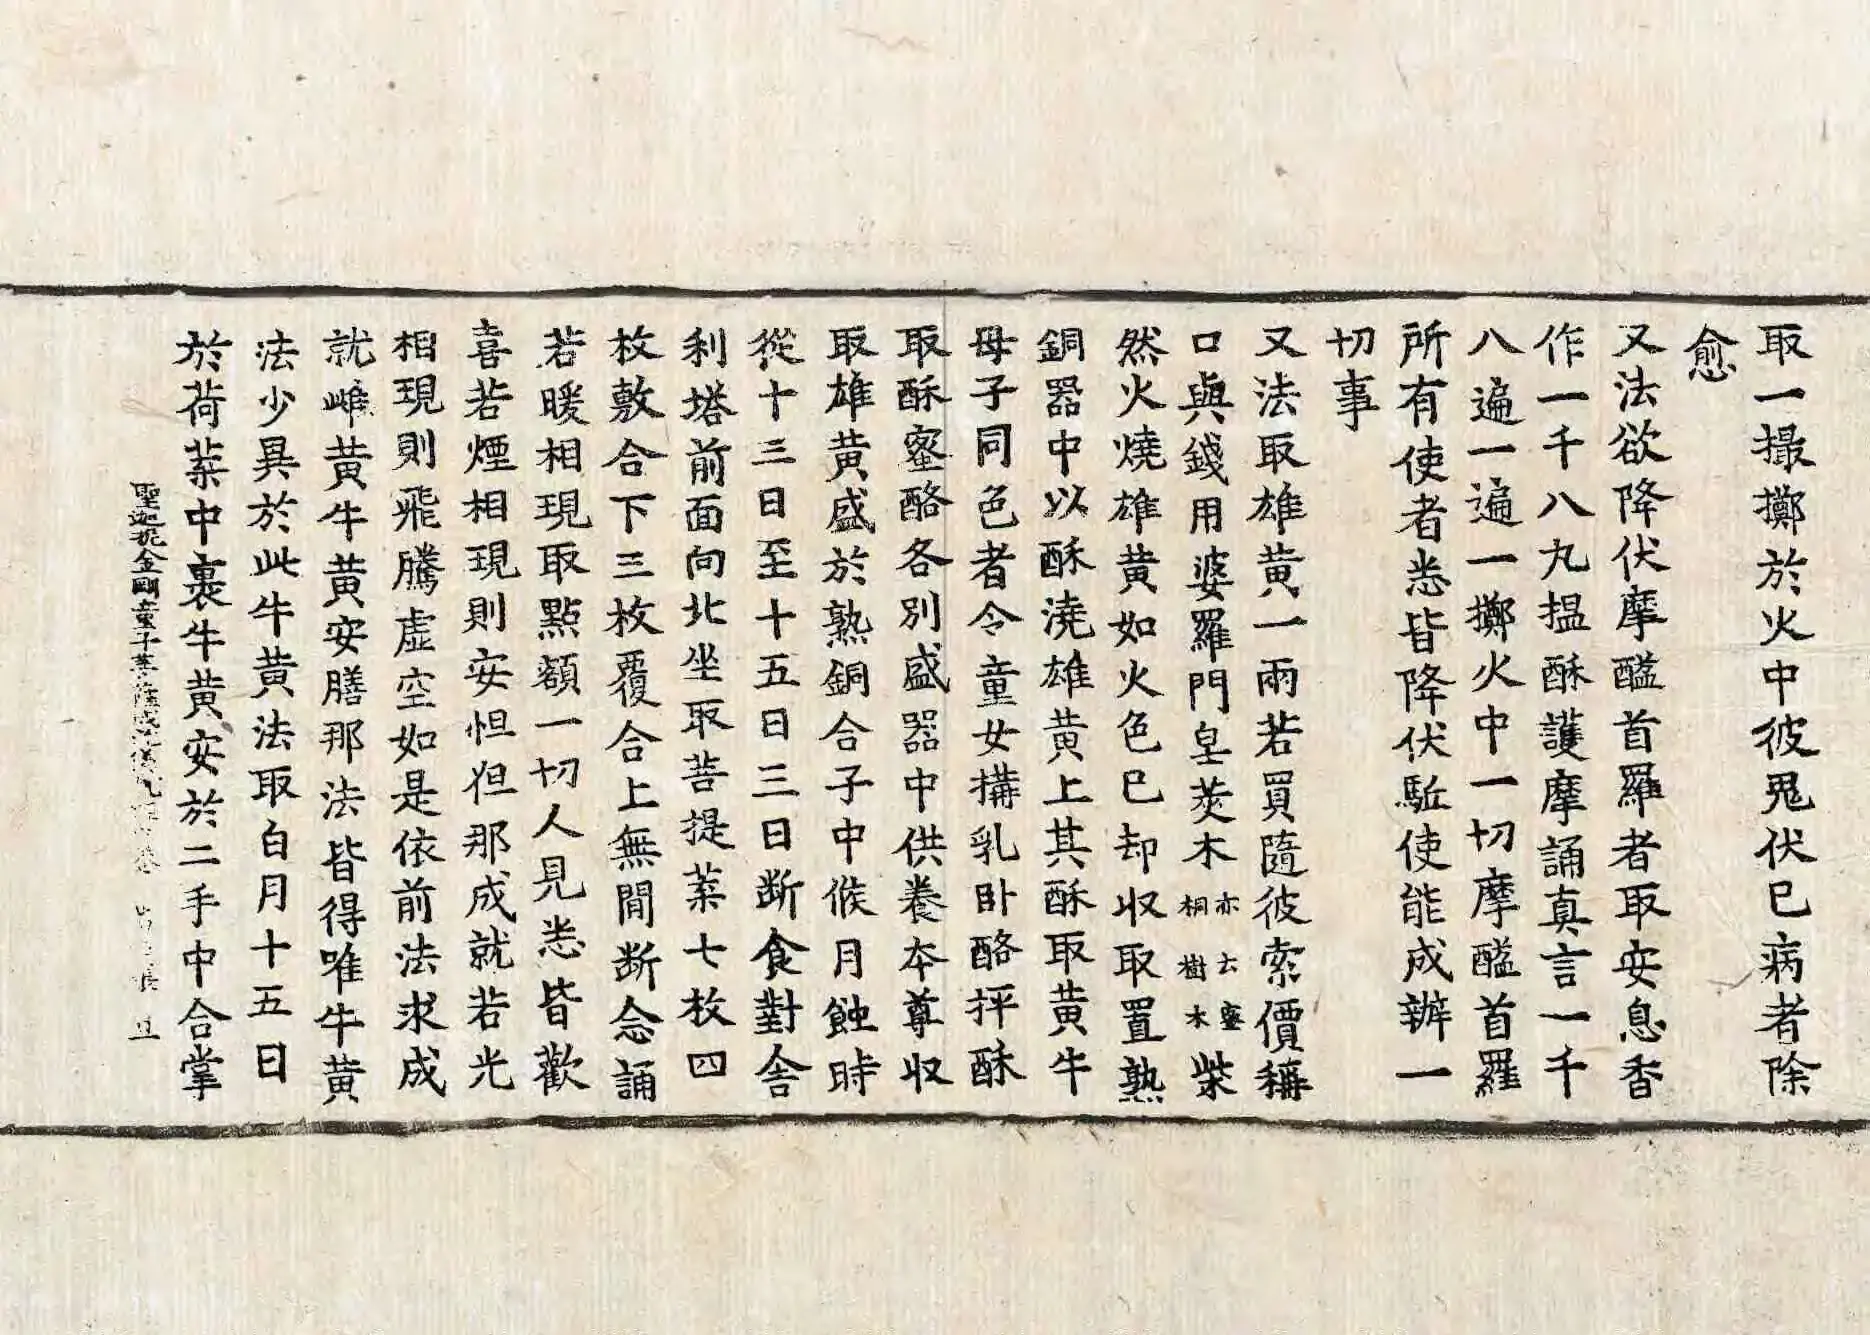 取一撮擲於火中彼鬼伏已病者除
愈
又法欲降伏摩醯首羅者取安息香
作一千八丸揾酥護摩誦真言一千
八遍一遍一擲火中一切摩醯首羅
所有使者悉皆降伏駈使能成辦一
切事
又法取雄黄一兩若買隨彼索價稱
口與錢用婆羅門皂莢木亦云蜜桐樹木柴
然火燒雄黄如火色已却収取置熟
銅器中以酥澆雄黄上其酥取黄牛
母子同色者令童女搆乳卧酪抨酥
取酥蜜酪各別盛器中供養本尊収
取雄黄盛於熟銅合子中候月蝕時
從十三日至十五日三日断食對舍
利塔前面向北坐取菩提葉七枚四
枚敷合下三枚覆合上無間断念誦
若暖相現取點額一切人見悉皆歡
喜若煙相現則安怛但那成就若光
相現則飛騰虛空如是依前法求成
就雌黄牛黄安膳那法皆得唯牛黄
法少異於此牛黄法取白月十五日
於荷葉中裹牛黄安於二手中合掌
聖迦抳金剛童子菩薩成